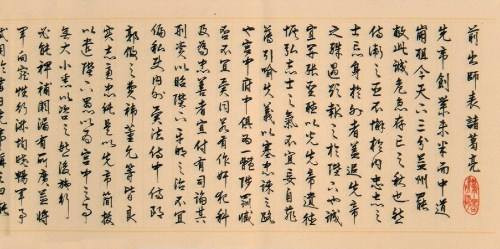 前出師表 諸葛亮
先帝創業未半而中道
崩殂今天下三分益州罷
敝此誠危急存亡之秋也然
侍衛之臣不懈於內忠志之
士忘身於外者蓋追先帝
之殊遇報之於陛下也誠
宜開張聖聽以光先帝遺德
恢弘志士之氣不宜妄自菲
薄引喻失義以塞忠諫之路
也宮中府中俱為一體陟罰臧
否不宜異同若有作奸犯科
及為忠善者宜付有司論其
刑賞以昭陛下平明之治不宜
偏私使內外異法侍中侍郎
郭攸之費禕董允等皆良
實志慮忠純是以先帝簡拔
以遺陛下愚以為宮中之事
無大小悉以咨之然後施行
必能裨補闕漏有所廣益將
軍向寵性行淑均曉暢軍事
試用於昔日先帝稱之曰能